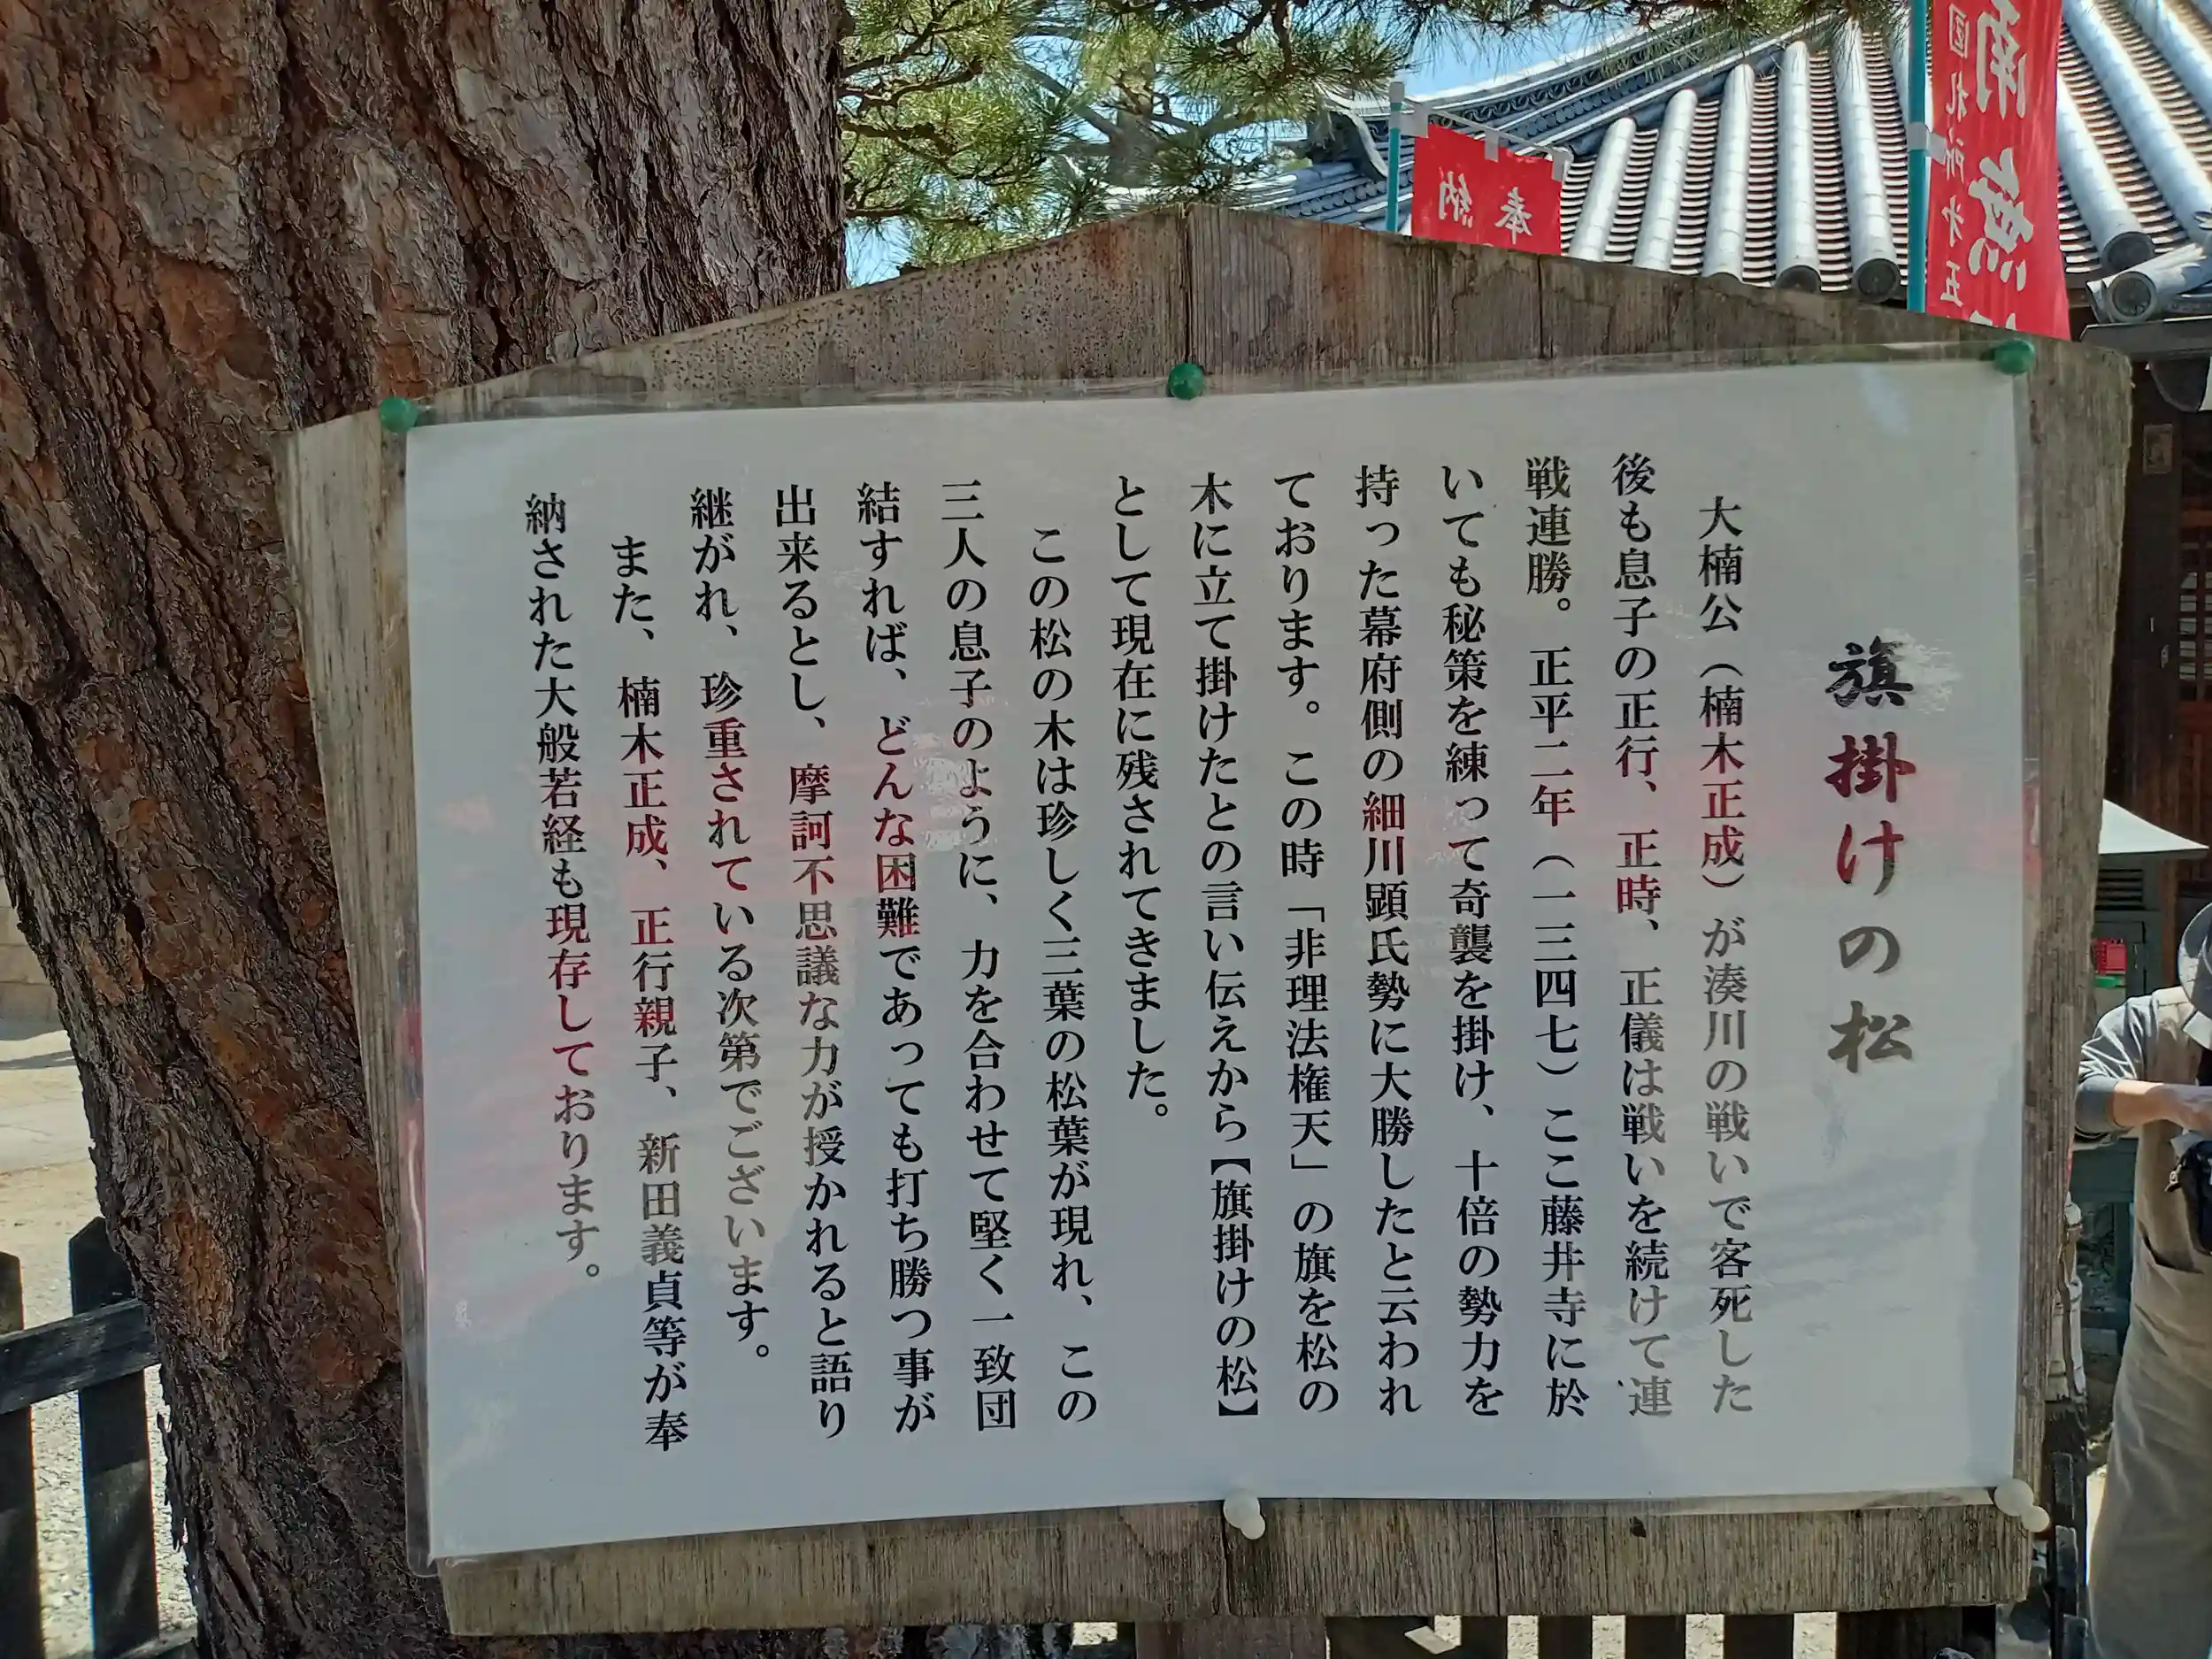 旗掛けの松
大楠公（楠木正成）が湊川の戦いで客死した
後も息子の正行、正時、正儀は戦いを続けて連
戦連勝。正平二年（一三四七）ここ藤井寺に於
いても秘策を練って奇襲を掛け、十倍の勢力を
持った幕府側の細川顕氏勢に大勝したと云われ
ております。この時「非理法権天」の旗を松の
木に立て掛けたとの言い伝えから【旗掛けの松】
として現在に残されてきました。
この松の木は珍しく三葉の松葉が現れ、この
三人の息子のように、力を合わせて堅く一致団
結すれば、どんな困難であっても打ち勝つ事が
出来るとし、摩訶不思議な力が授かれると語り
継がれ、珍重されている次第でございます。
また、楠木正成、正行親子、新田義貞等が奉
納された大般若経も現存しております。
奉納
南無
国札所第五